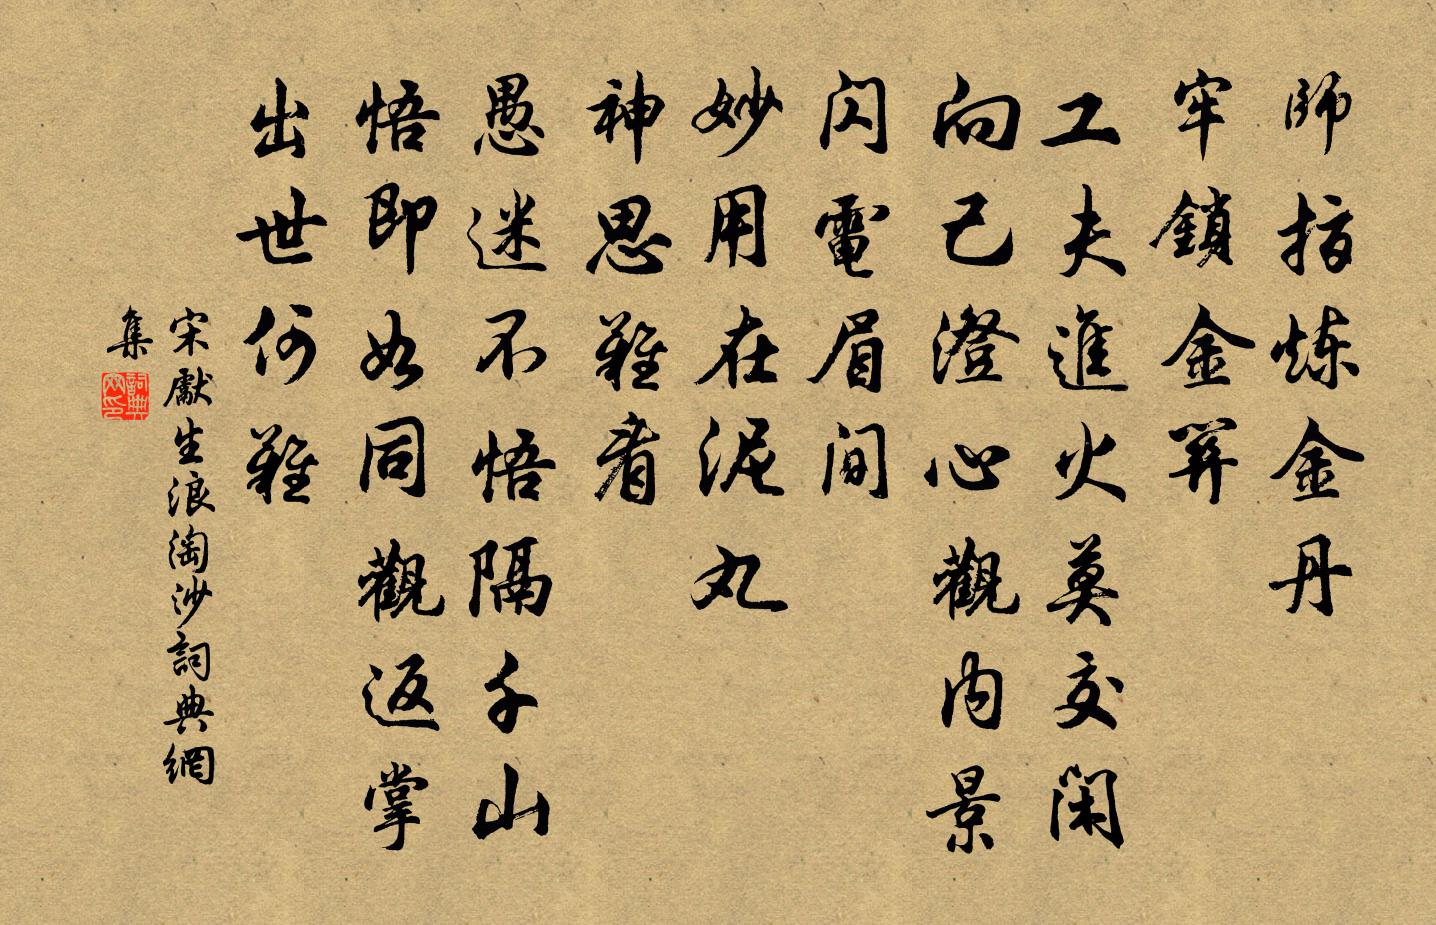 師指炼金丹
牢鎖金関
工夫進火莫交閑
向己澄心觀内景
閃電眉間
妙用在泥丸
神思難看
愚迷不悟隔千山
悟即如同觀返掌
出世何難
宋獻生浪淘沙詞典網
集
詞典